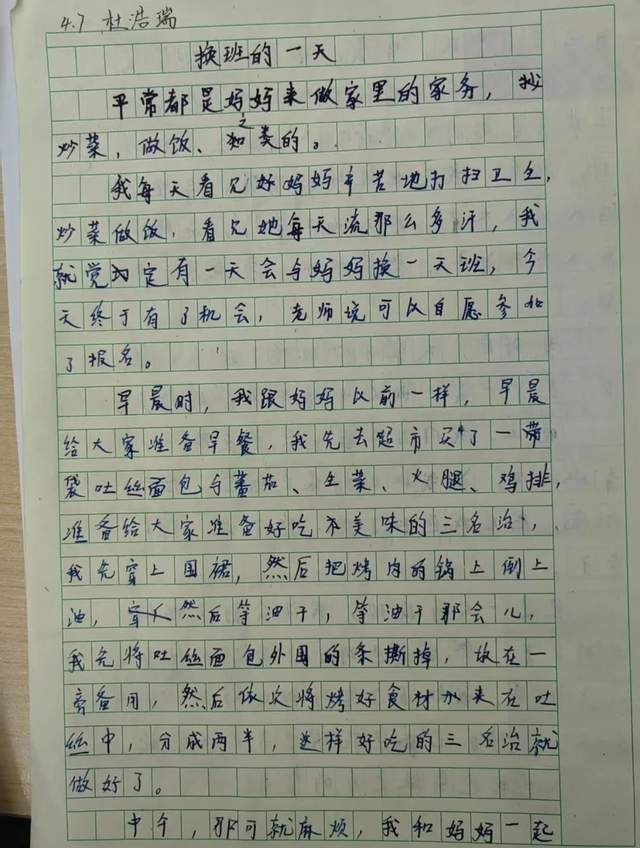 4.7 杜浩瑞
换班的一天
平常都是妈妈来做家里的家务，抄
炒菜，做饭、之如类的。
我每天看见好妈妈辛苦地打扫卫生，
炒菜做饭，看见她每天流那么多汗，我
就觉定有一天会与妈妈换一天班，今
天终于有了机会，老师说可以自愿参
了报名。
早晨时，我跟妈妈以前一样，早晨
给大家准备早餐，我先去超市买了一带
袋吐丝面包与蕃茄、生菜、火腿、鸡排，
准备给大家准备好吃不美味的三名治，
我先穿上围裙，然后把烤肉的锅上倒上
油，穿然后等油干，等油干那会儿，
我先将吐丝面包外围的条撕掉，放在一
旁备用，然后依次将烤好食材加来在吐
丝中，分成两半，这样好吃的三名治就
做好了。
中午，那可就麻烦，我和妈妈一起